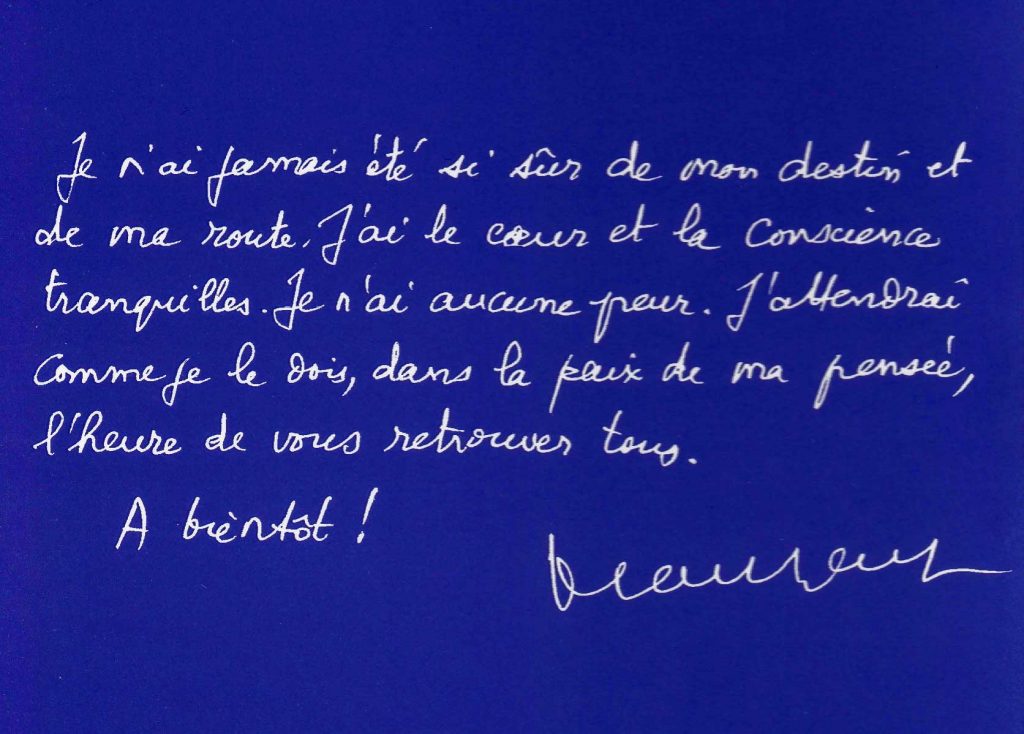 Je n'ai jamais été si sûr de mon destin et
de ma route. J'ai le cœur et la conscience
tranquilles. Je n'ai aucune peur. J'attendrai
comme je le dois, dans la paix de ma pensée,
l'heure de vous retrouver tous.
A bientôt !